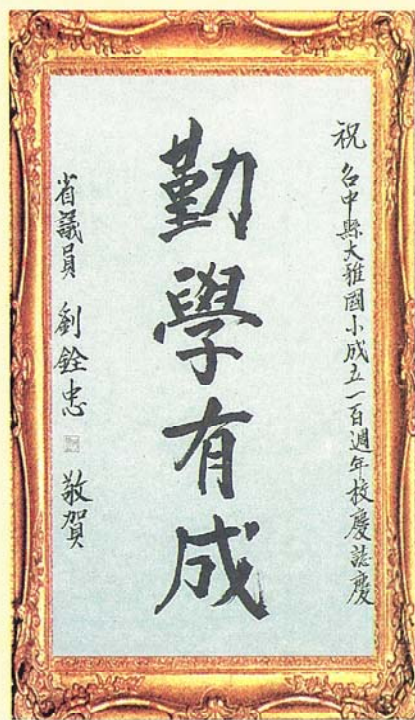 祝 台中縣大雅國小成立一百週年校慶誌慶
勤學有成
省議員 劉銓忠 敬賀